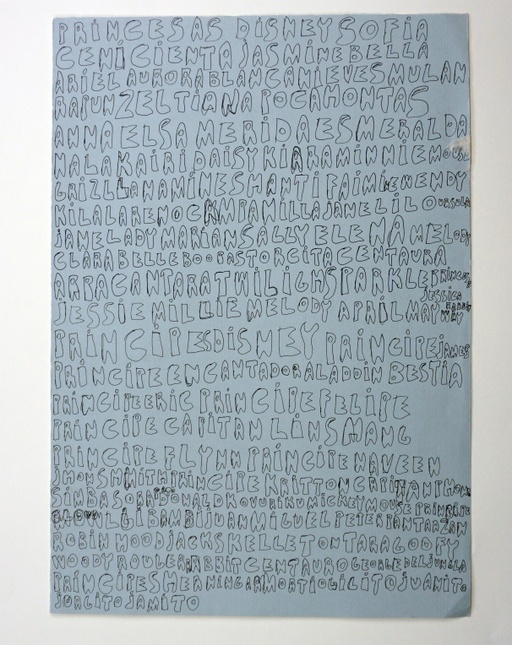 PRINCESAS DISNEY SOFIA
CENICIENTA JASMINE BELLA
ARIEL AURORA BLANCANIEVES MULAN
RAPUNZEL TIANA POCAHONTAS
ANNA ELSA MERIDA ESMERALDA
NALA KAIRI DAISY KIARA MINNIE MOUSE
GRIZLLANA MINE SHANTI FAIMIE WENDY
KILALA RENO CAMPAMILLA JANE LILO URSULA
JANE LADY MARIAN SALLY ELENA MELODY
CLARABELLE BOO PASTORCITA CENTAURA
ARPA CANTARA TWILIGHSPARKLE PRINCESS
JESSICA
JESSIE MILLIE MELODY APRIL MAY
PRINCIPES DISNEY PRINCIPE JAMES
PRINCIPE ENCANTADOR ALADDIN BESTIA
PRINCIPE ERIC PRINCIPE FELIPE
PRINCIPE CAPITAN LIN SMANG
PRINCIPE FLYNN PRINCIPE NAVEEN
JHON SMHITH PRINCIPE KRITTON CAPITAN PHOHB
SIMBA SORA DONALD KOVU RIKU MICKEY MOUSE PRINCIPE
BAMBI JUAN MIGUEL PETER PAN TARZAN
ROBIN HOOD JACK SKELLETON TARA GOOFY
WOODY ROULE RABBIT CENTAURO GEORGE DEL JUNGLA
PRINCIPE SHEANING ARMORTIO LILITO JUANITO
JORGITO JAMITO